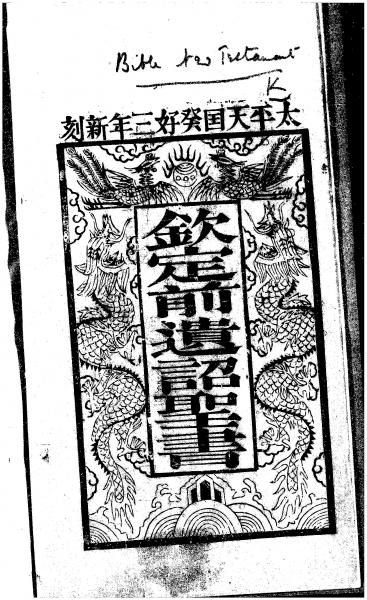 Bible New Testament
太平天囯癸好三年新刻
欽定前遺詔聖書